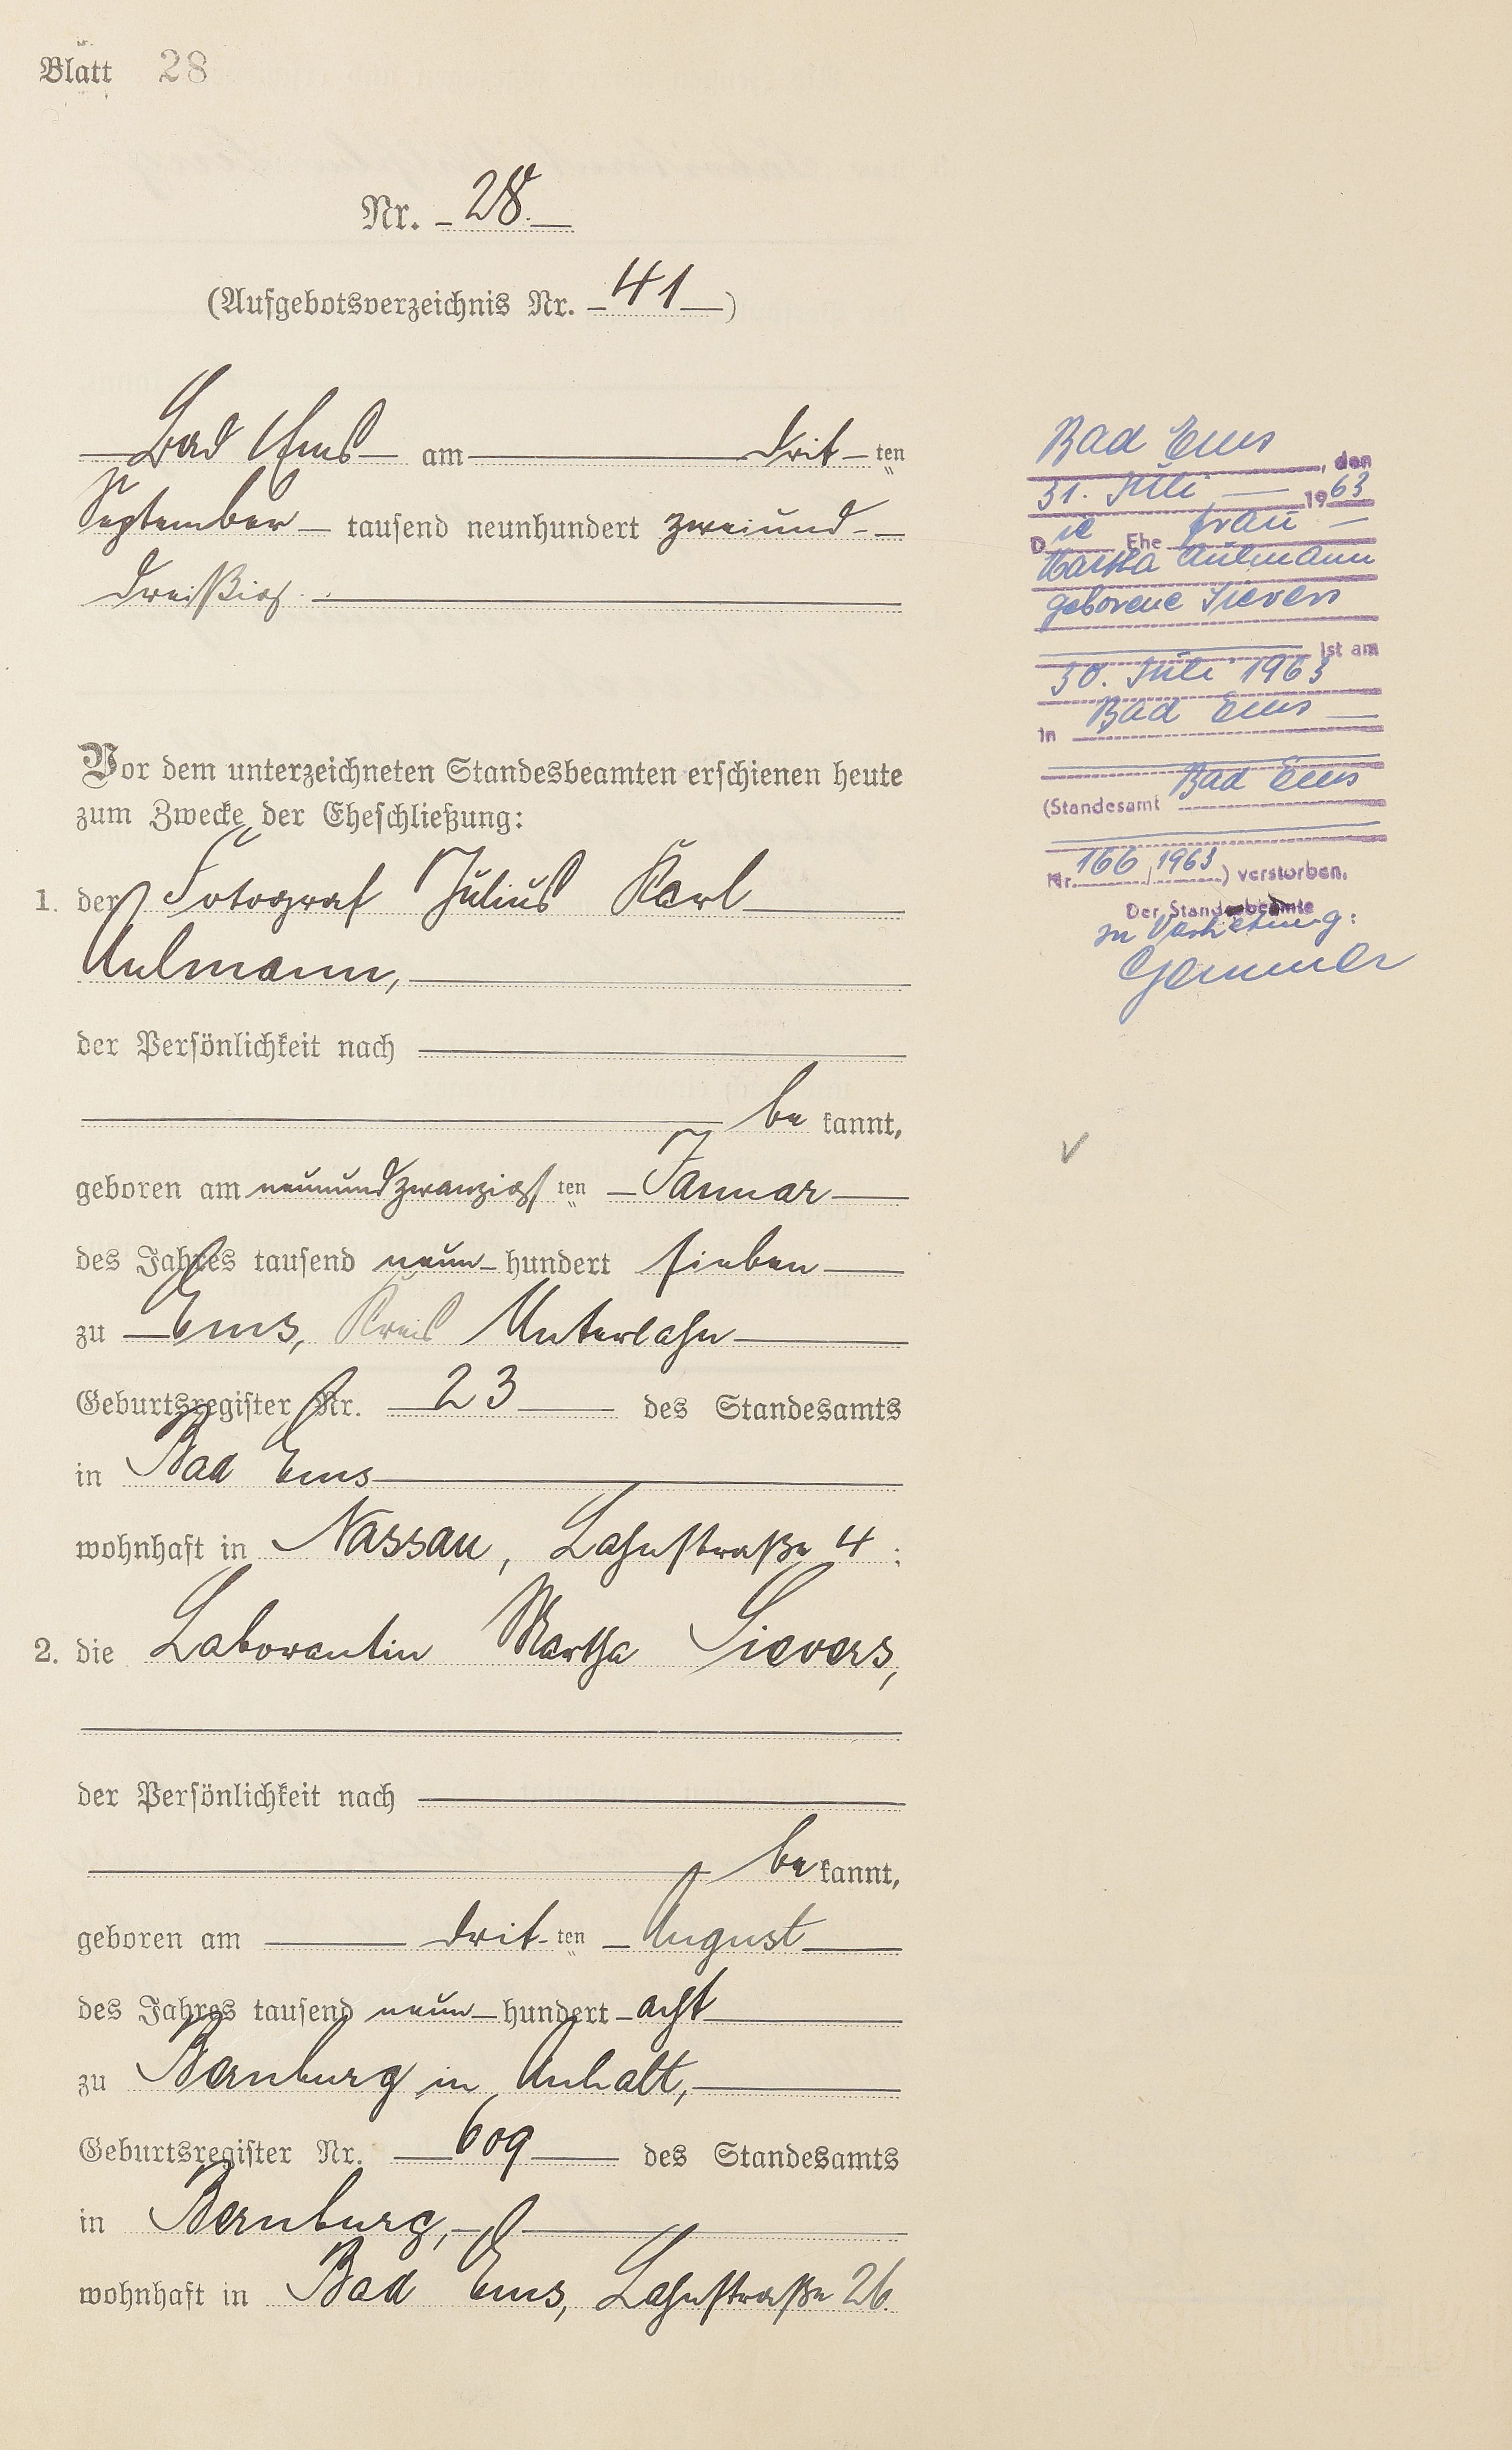 Blatt 28
Nr. 28.
(Aufgebotsverzeichnis Nr. 41)
Bad Ems am drit ten
September tausend neunhundert zweiund-
dreißig.
Vor dem unterzeichneten Standesbeamten erschienen heute
zum Zwecke der Eheschließung:
1. der Fotograf Julius Karl
Aulmann,
der Persönlichkeit nach
be kannt,
geboren am neunundzwanzigsten Januar
des Jahres tausend neun hundert sieben
zu Ems, Kreis Unterlahn
Geburtsregister Nr. 23 des Standesamts
in Bad Ems
wohnhaft in Nassau, Lahnstraße 4;
2. die Laborantin Martha Sievers,
der Persönlichkeit nach
be kannt,
geboren am drit ten August
des Jahres tausend neun hundert acht
zu Bernburg in Anhalt,
Geburtsregister Nr. 609 des Standesamts
in Bernburg,
wohnhaft in Bad Ems, Lahnstraße 26.
Bad Ems, den
31. Juli 1963
Die Ehe frau
Martha Aulmann
geborene Sievers
ist am
30. Juli 1963
in Bad Ems
(Standesamt Bad Ems
Nr. 166/1963) verstorben.
Der Standesbeamte
In Vertretung: